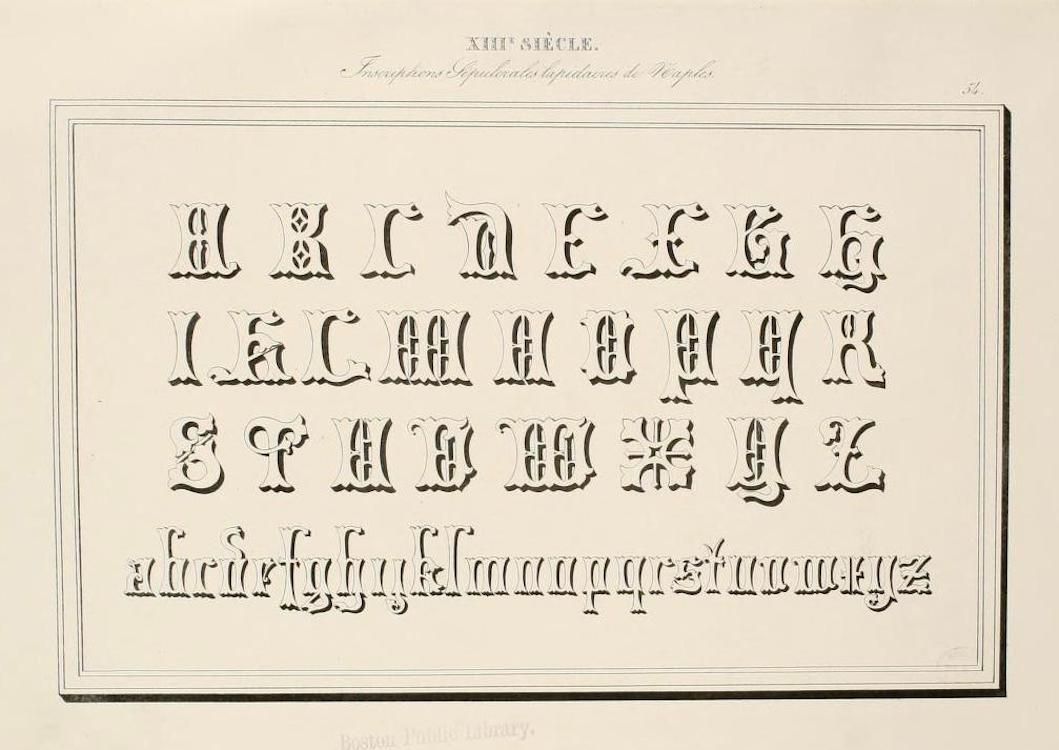 XIIIᵉ SIÈCLE.
Inscriptions Sépulcrales lapidaires de Naples.
54.
A B C D E F G H
I K L M N O P Q R
S T U V W X Y Z
abcdefghijklmnopqrstuvwxyz
Boston Public Library.